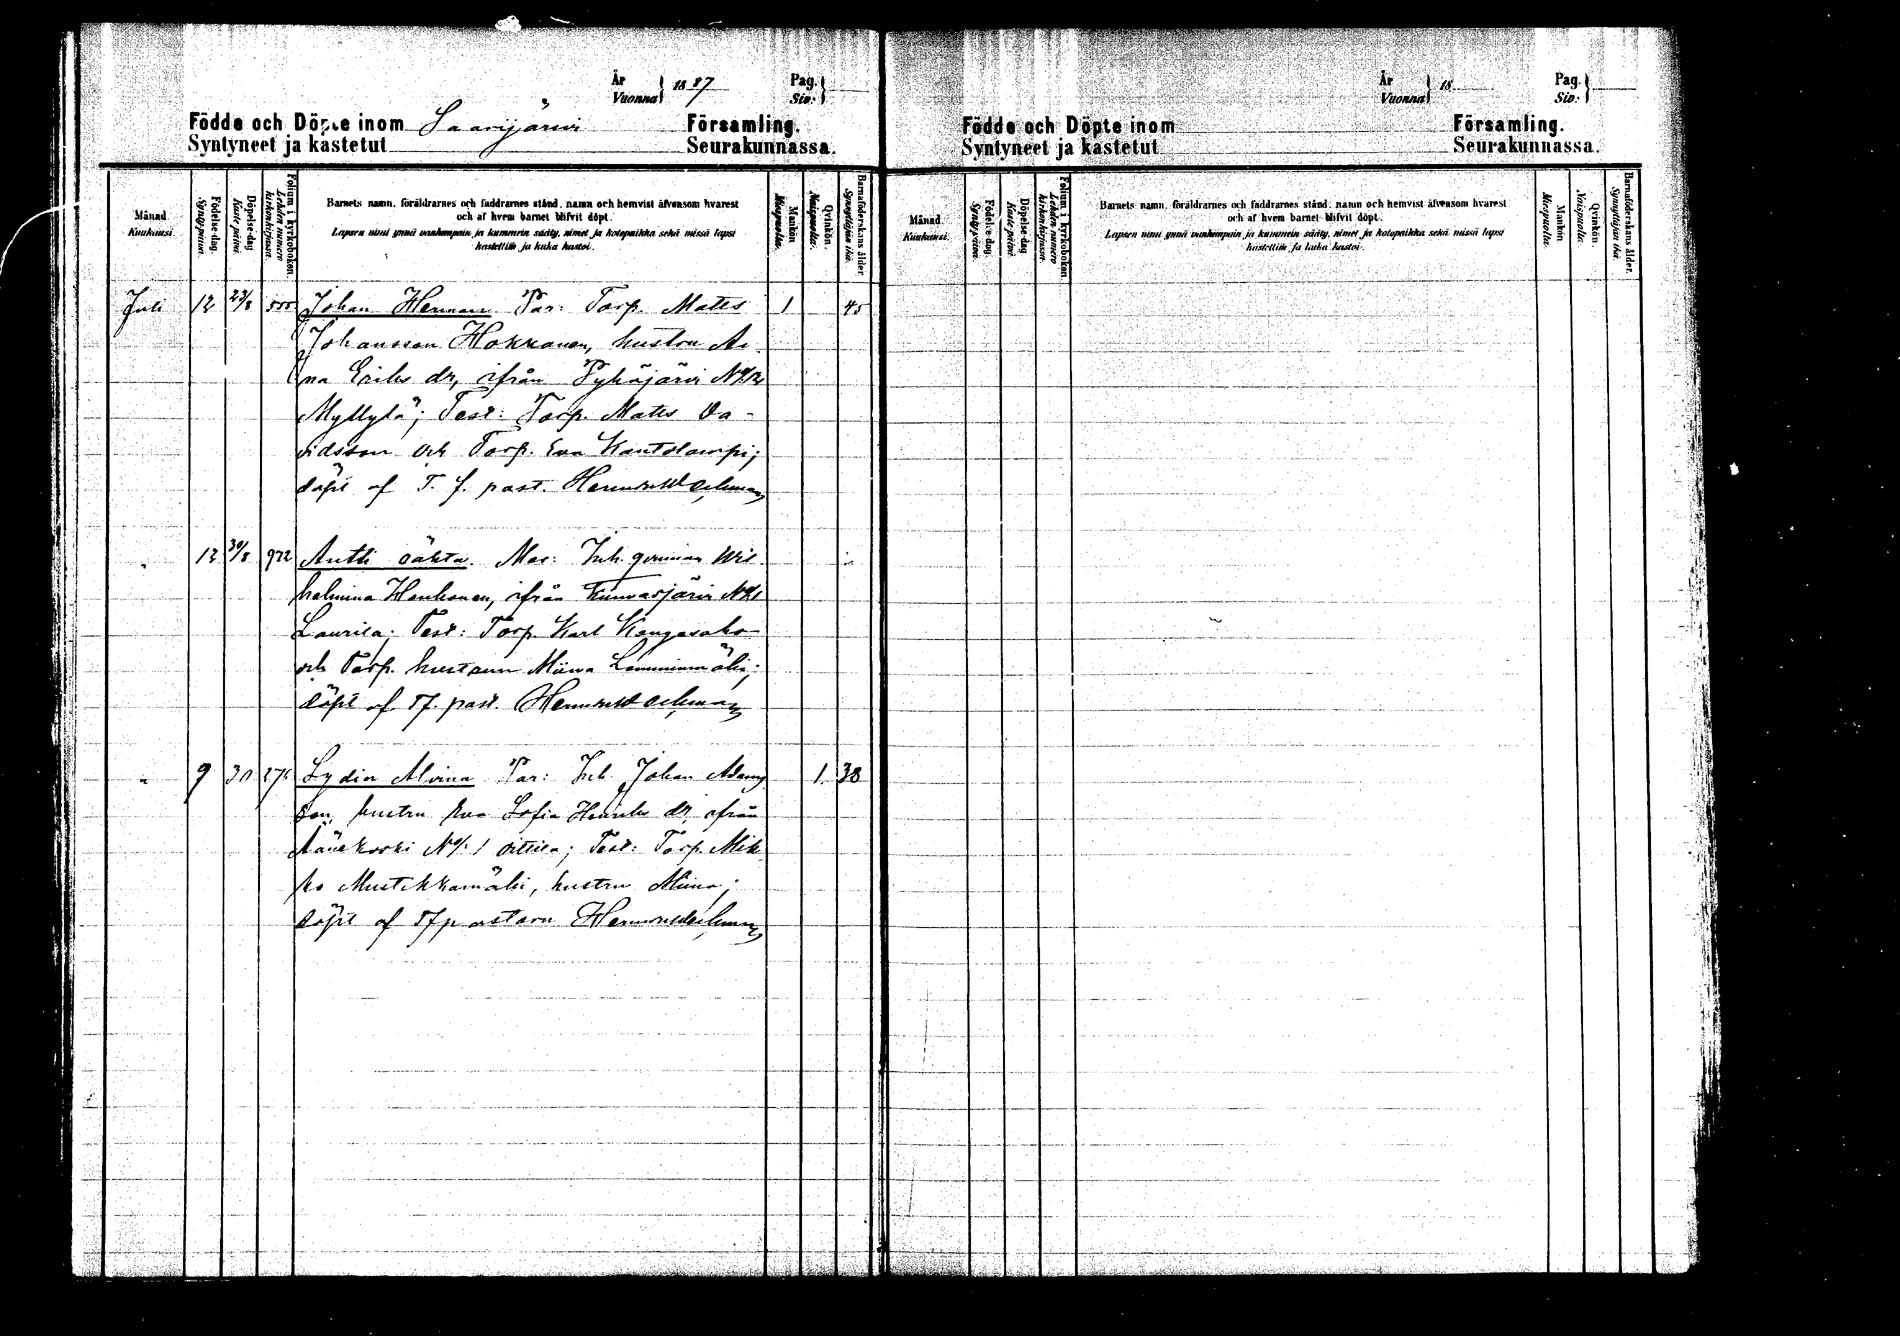 År
Vuonna } 1887
Pag.
Siv: }
Födde och Döpte inom Saarijärvi Församling.
Syntyneet ja kastetut Seurakunnassa.
Månad. Kuukausi.
Födelse-dag. Syntypäivä.
Döpelse-dag. Kaste-päivä.
Folium i kyrkoboken. Lehden numero kirkonkirjassa.
Barnets namn, föräldrarnes och faddrarnes stånd, namn och hemvist äfvensom hvarest
och af hvem barnet blifvit döpt.
Lapsen nimi ynnä vanhempain ja kummein sääty, nimet ja kotopaikka sekä missä lapsi
kastettiin ja kuka kastoi.
Mankön. Miespuolia.
Qvinkön. Naispuolia.
Barnaföderskans ålder. Synnyttäjän ikä.
Juli 12 23/8 500 Johan Herman Par: Torp. Matts 1 45
Johansson Hokkanen, hustru An
na Eriks dr, ifrån Pyhäjärvi
Myllylä; Test: Torp. Matts Da-
vidsson och Torp. Eva Kantolampi;
döpt af T. f. past.
" 12 30/8 922 Antti oäkta. Mor: Inh. qvinnan Wil
helmina Honkonen, ifrån
Laurila; Test: Torp. Karl Kangasaho
och Torp. hustrun Miina
döpt af Tf. past.
" 9 30 276 Lydia Alvina Par: Inh. Johan Adams 1. 38
son, hustru Eva Sofia Henriks dr, ifrån
Äänekoski No 1 Test: Torp. Mik
ko Mustikkamäki, hustru Miina;
döpt af Tf pastorn
År
Vuonna } 18
Pag.
Siv: }
Födde och Döpte inom Församling.
Syntyneet ja kastetut Seurakunnassa.
Månad. Kuukausi.
Födelse-dag. Syntypäivä.
Döpelse-dag. Kaste-päivä.
Folium i kyrkoboken. Lehden numero kirkonkirjassa.
Barnets namn, föräldrarnes och faddrarnes stånd, namn och hemvist äfvensom hvarest
och af hvem barnet blifvit döpt.
Lapsen nimi ynnä vanhempain ja kummein sääty, nimet ja kotopaikka sekä missä lapsi
kastettiin ja kuka kastoi.
Mankön. Miespuolia.
Qvinkön. Naispuolia.
Barnaföderskans ålder. Synnyttäjän ikä.